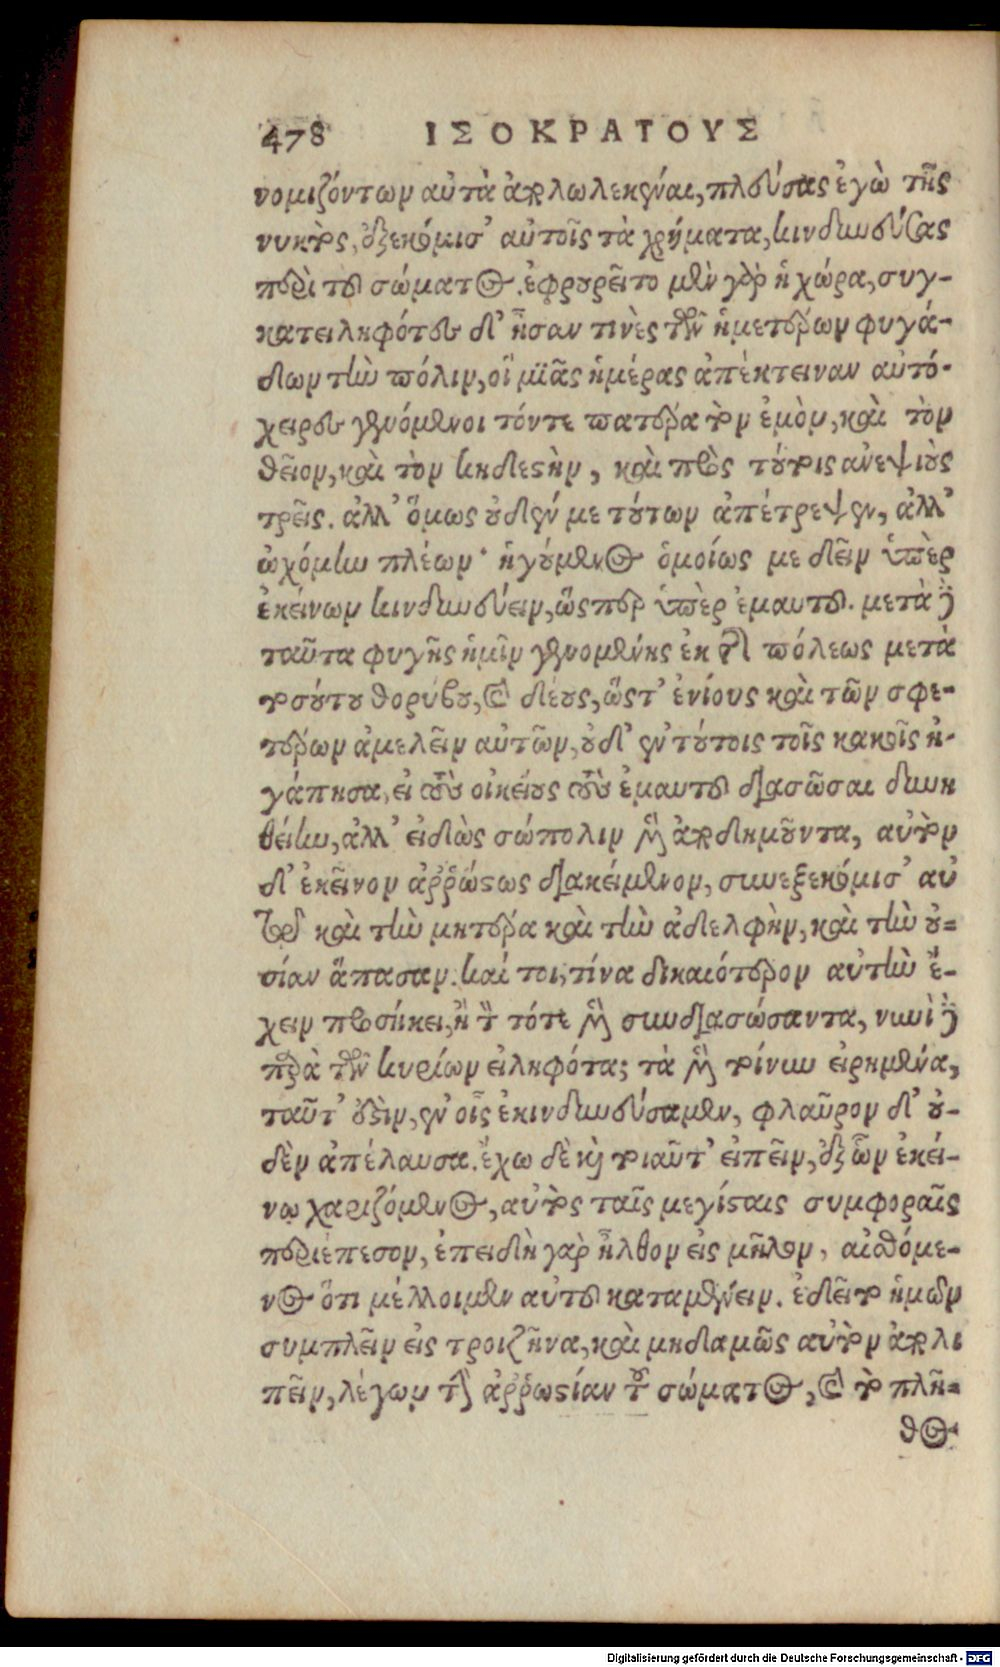 478 ΙΣΟΚΡΑΤΟΥΣ
νομιζόντων αὐτὰ ἀπολωλεκέναι, πλεύσας ἐγὼ τῆς
νυκτὸς, ἐξεκόμισ' αὐτοῖς τὰ χρήματα, κινδυνεύσας
περὶ τοῦ σώματος. ἐφρουρεῖτο μὲν γὰρ ἡ χώρα, συγ-
κατειληφότες δ' ἦσαν τινὲς τῶν ἡμετέρων φυγά-
δων τὴν πόλιν, οἳ μιᾶς ἡμέρας ἀπέκτειναν αὐτό-
χειρες γενόμενοι τόν τε πατέρα τὸν ἐμὸν, καὶ τὸν
θεῖον, καὶ τὸν κηδεστὴν, καὶ πρὸς τούτοις ἀνεψιοὺς
τρεῖς. ἀλλ' ὅμως οὐδέν με τούτων ἀπέτρεψεν, ἀλλ'
ᾠχόμην πλέων· ἡγούμενος ὁμοίως με δεῖν ὑπὲρ
ἐκείνων κινδυνεύειν, ὥσπερ ὑπὲρ ἐμαυτοῦ. μετὰ δὲ
ταῦτα φυγῆς ἡμῖν γενομένης ἐκ τῆς πόλεως μετὰ
τοσούτου θορύβου, καὶ δέους, ὥστ' ἐνίους καὶ τῶν σφε-
τέρων ἀμελεῖν αὐτῶν, οὐδ' ἐν τούτοις τοῖς κακοῖς ἠ-
γάπησα, εἰ τοὺς οἰκείους τοὺς ἐμαυτοῦ διασῶσαι δυνη
θείην, ἀλλ' εἰδὼς σώπολιν μὲν ἀποδημοῦντα, αὐτὸν
δ' ἐκεῖνον ἀῤῥώστως διακείμενον, συνεξεκόμισ' αὐ
τῷ καὶ τὴν μητέρα καὶ τὴν ἀδελφὴν, καὶ τὴν οὐ-
σίαν ἅπασαν. καί τοι, τίνα δικαιότερον αὐτὴν ἔ-
χειν προσήκει, ἢ τὸν τότε μὲν συνδιασώσαντα, νυνὶ δὲ
παρὰ τῶν κυρίων εἰληφότα; τὰ μὲν τοίνυν εἰρημένα,
ταῦτ' ἐστὶν, ἐν οἷς ἐκινδυνεύσαμεν, φλαῦρον δ' οὐ-
δὲν ἀπέλαυσα. ἔχω δὲ καὶ τοιαῦτ' εἰπεῖν, ἐξ ὧν ἐκεί-
νῳ χαριζόμενος, αὐτὸς ταῖς μεγίσταις συμφοραῖς
περιέπεσον, ἐπειδὴ γὰρ ἦλθον εἰς μῆλον, αἰσθόμε-
νος ὅτι μέλλοιμεν αὐτοῦ καταμένειν. ἐδεῖτο ἡμῶν
συμπλεῖν εἰς τροιζῆνα, καὶ μηδαμῶς αὐτὸν ἀπολι
πεῖν, λέγων τὴν ἀῤῥωστίαν τοῦ σώματος, καὶ τὸ πλῆ-
θος
Digitalisierung gefördert durch die Deutsche Forschungsgemeinschaft - DFG